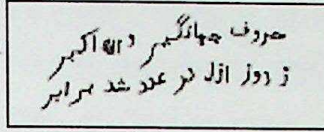 حروف جهانگیر و الله اکبر
ز روز ازل در عدد شد برابر